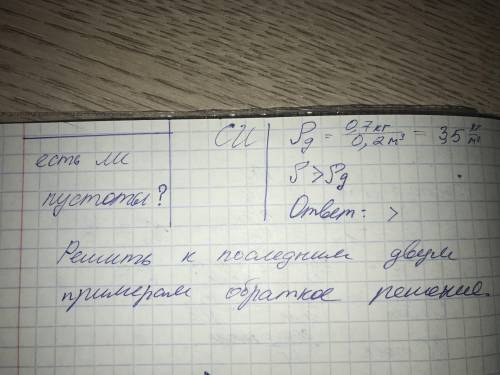 есть ли
пустоты?
СИ
ρд = 0,7 кг / 0,2 м³ = 3,5 кг/м³
ρ > ρд
Ответ: >
Решить к последним двум
примерам обратное решение.